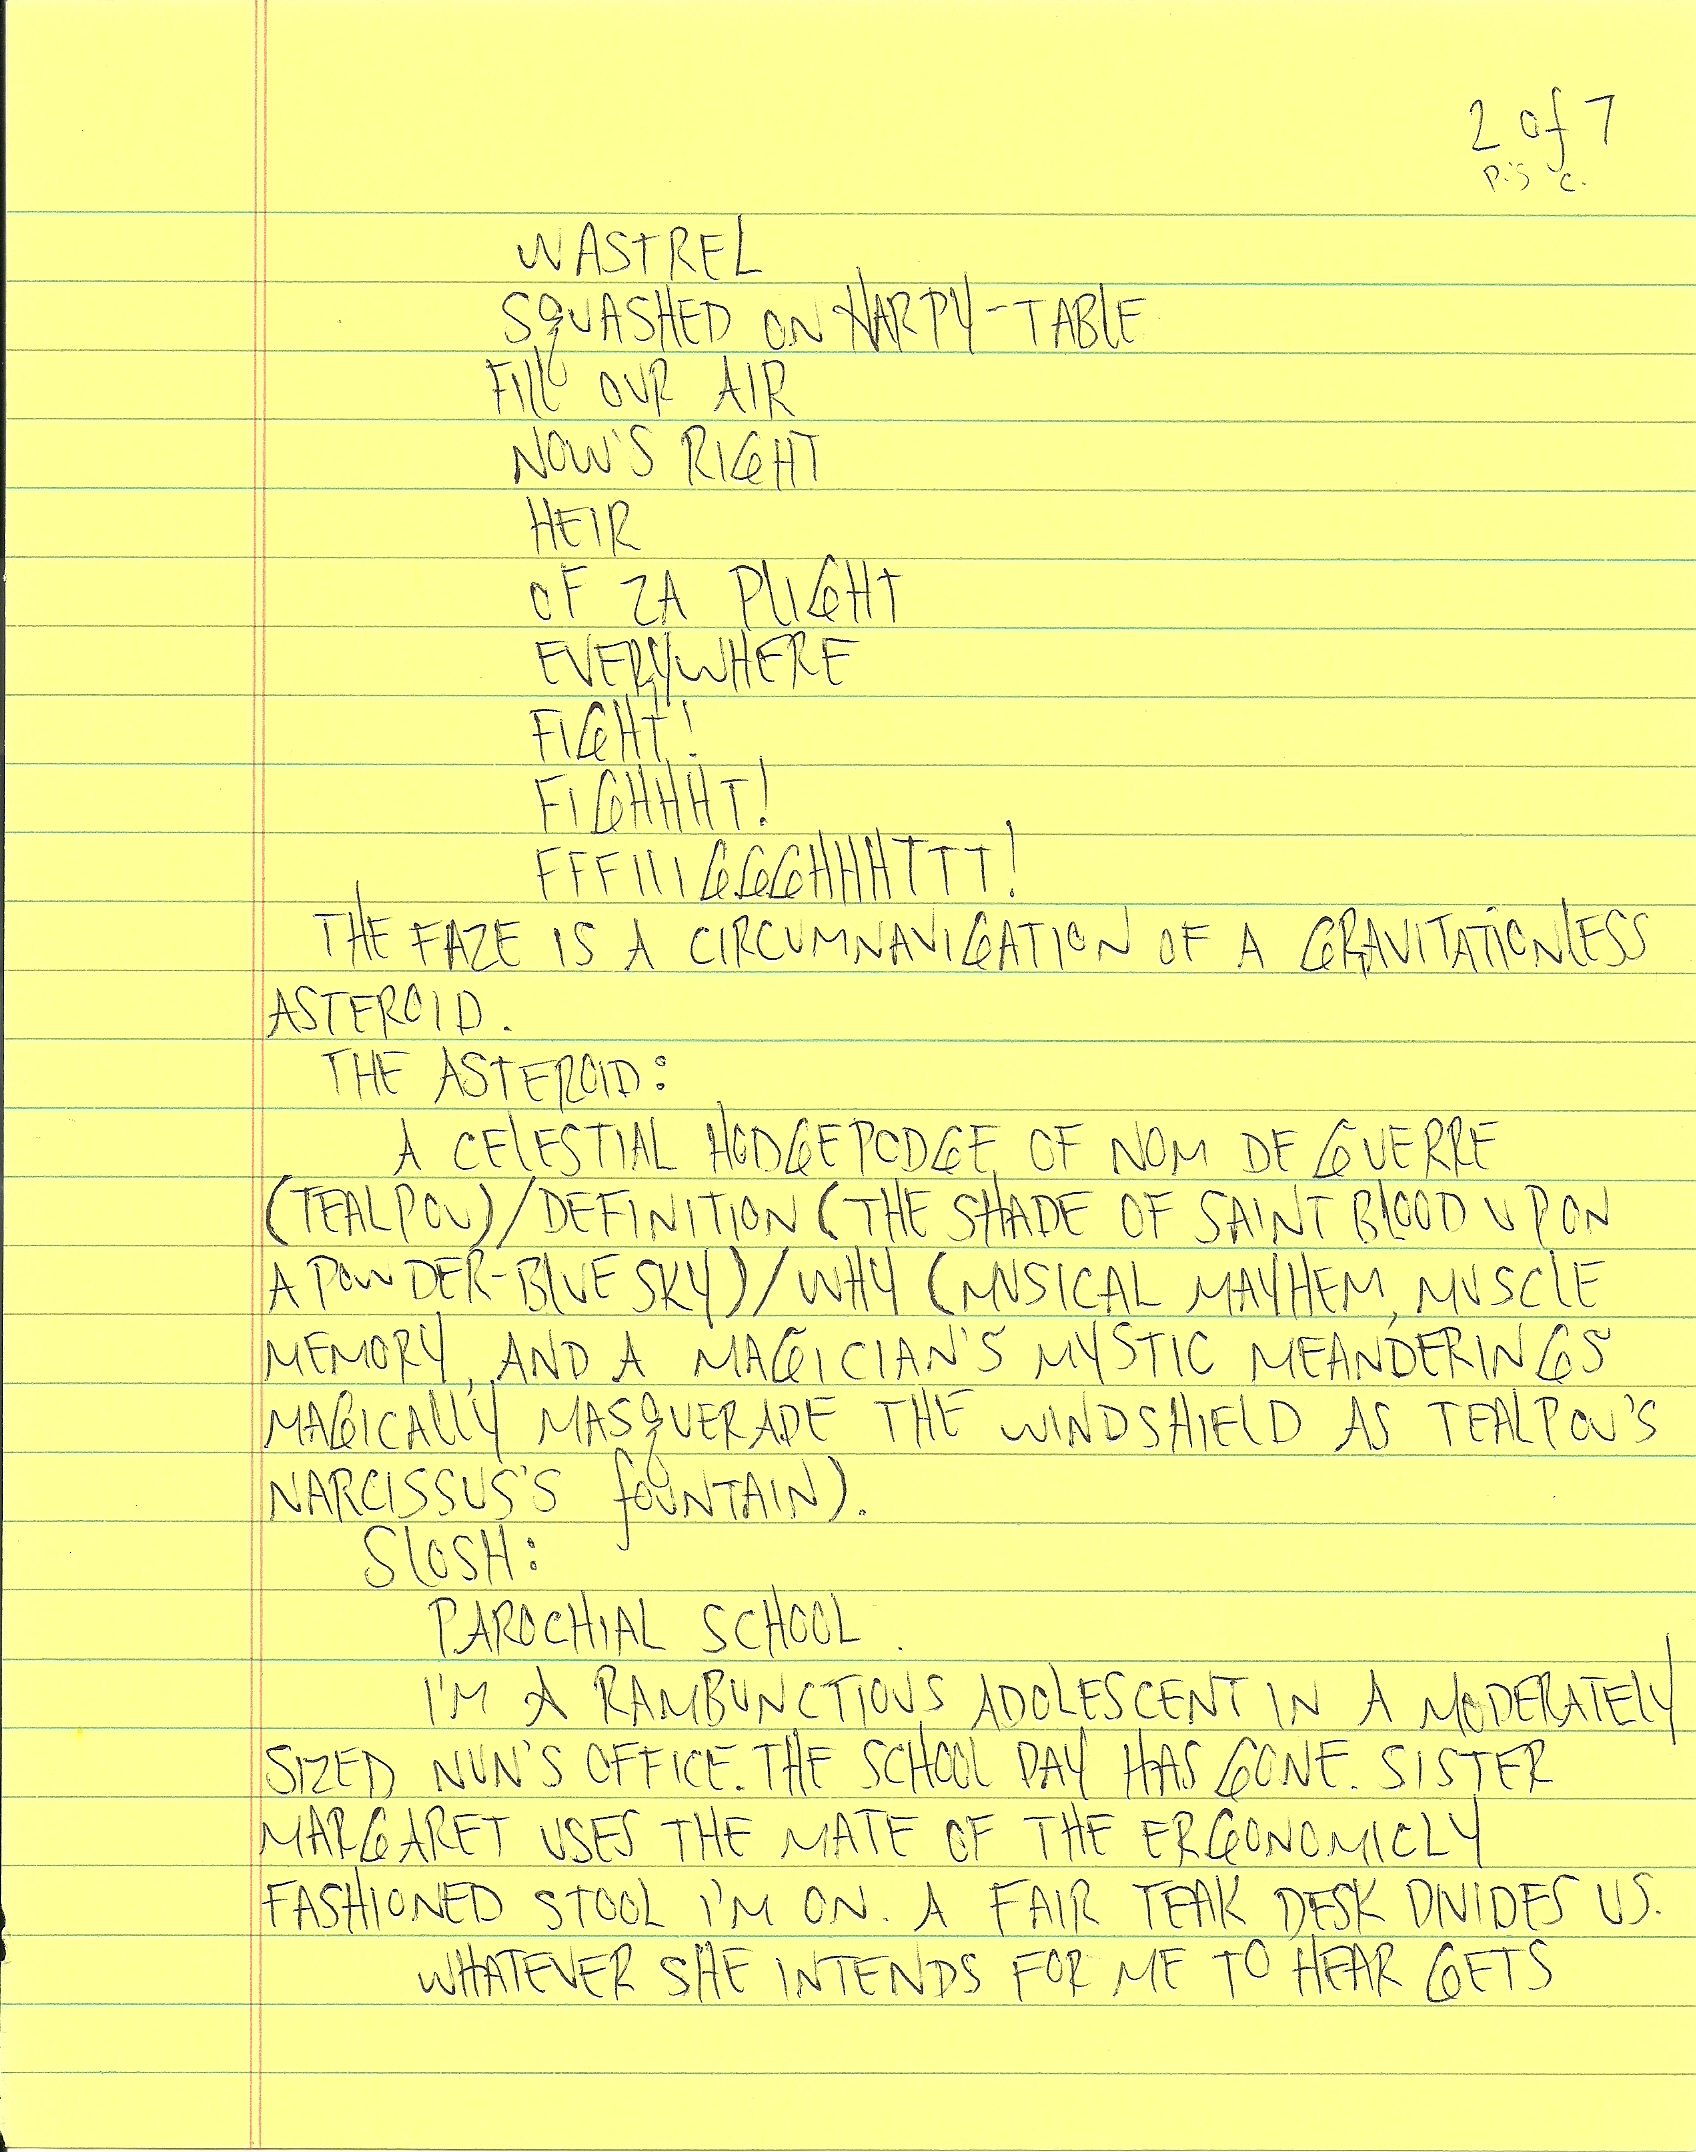 2 of 7
P.'S C.
WASTREL
SQUASHED ON HARPY-TABLE
FILL OUR AIR
NOW'S RIGHT
HEIR
OF ZA PLIGHT
EVERYWHERE
FIGHT!
FIGHHHT!
FFFIIIGGGHHHTTT!
THE FAZE IS A CIRCUMNAVIGATION OF A GRAVITATIONLESS
ASTEROID.
THE ASTEROID:
A CELESTIAL HODGEPODGE OF NOM DE GUERRE
(TEALPOW)/DEFINITION (THE SHADE OF SAINT BLOOD UPON
A POWDER-BLUE SKY)/WHY (MUSICAL MAYHEM, MUSCLE
MEMORY, AND A MAGICIAN'S MYSTIC MEANDERINGS
MAGICALLY MASQUERADE THE WINDSHIELD AS TEALPOW'S
NARCISSUS'S fOUNTAIN).
SLOSH:
PAROCHIAL SCHOOL.
I'M A RAMBUNCTIOUS ADOLESCENT IN A MODERATELY
SIZED NUN'S OFFICE. THE SCHOOL DAY HAS GONE. SISTER
MARGARET USES THE MATE OF THE ERGONOMICLY
FASHIONED STOOL I'M ON. A FAIR TEAK DESK DIVIDES US.
WHATEVER SHE INTENDS FOR ME TO HEAR GETS